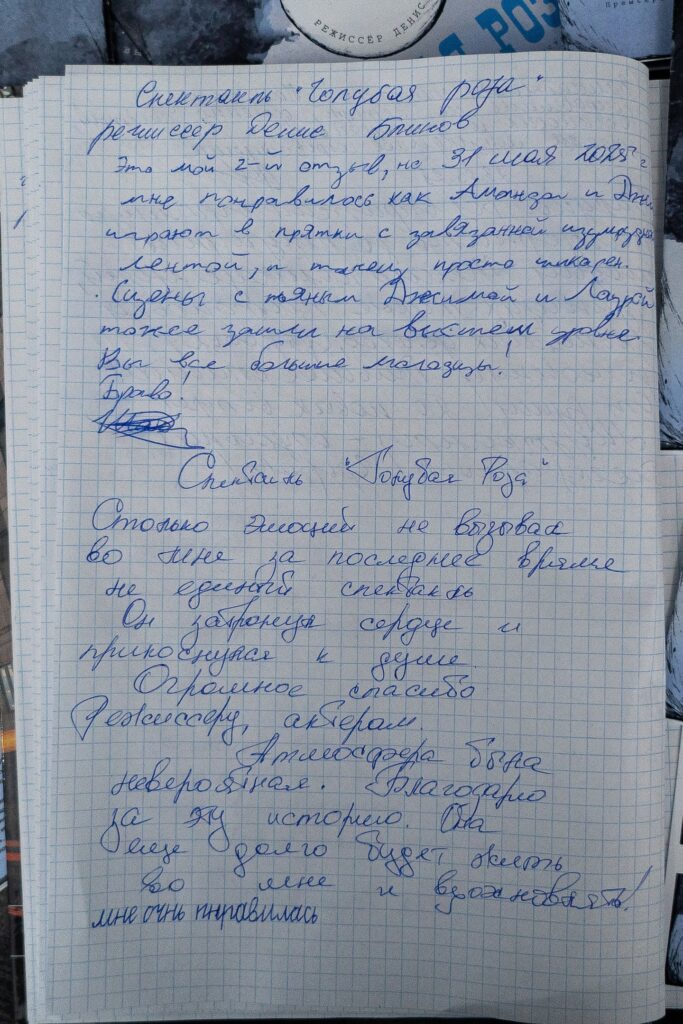 РЕЖИССЁР ДЕНИС
РОЗ
Премьера
Спектакль "Голубая роза"
режиссёр Денис Блинов
Это мой 2-й отзыв, на 31 мая 2025 г
мне понравилось как Аманда и Джим
играют в прятки с завязанной
лентой, и танец просто шикарен.
Сцены с пьяным Джимом и Лаурой
тоже зашли на высшем уровне.
Вы все большие молодцы!
Браво!
Спектакль "Голубая Роза"
Столько эмоций не вызывал
во мне за последнее время
не единый спектакль
Он затронул сердце и
прикоснулся к душе.
Огромное спасибо
Режиссеру, актерам.
Атмосфера была
невероятная. Благодарю
за эту историю. Она
еще долго будет жить
во мне и вдохновлять!
мне очнь пнравилась